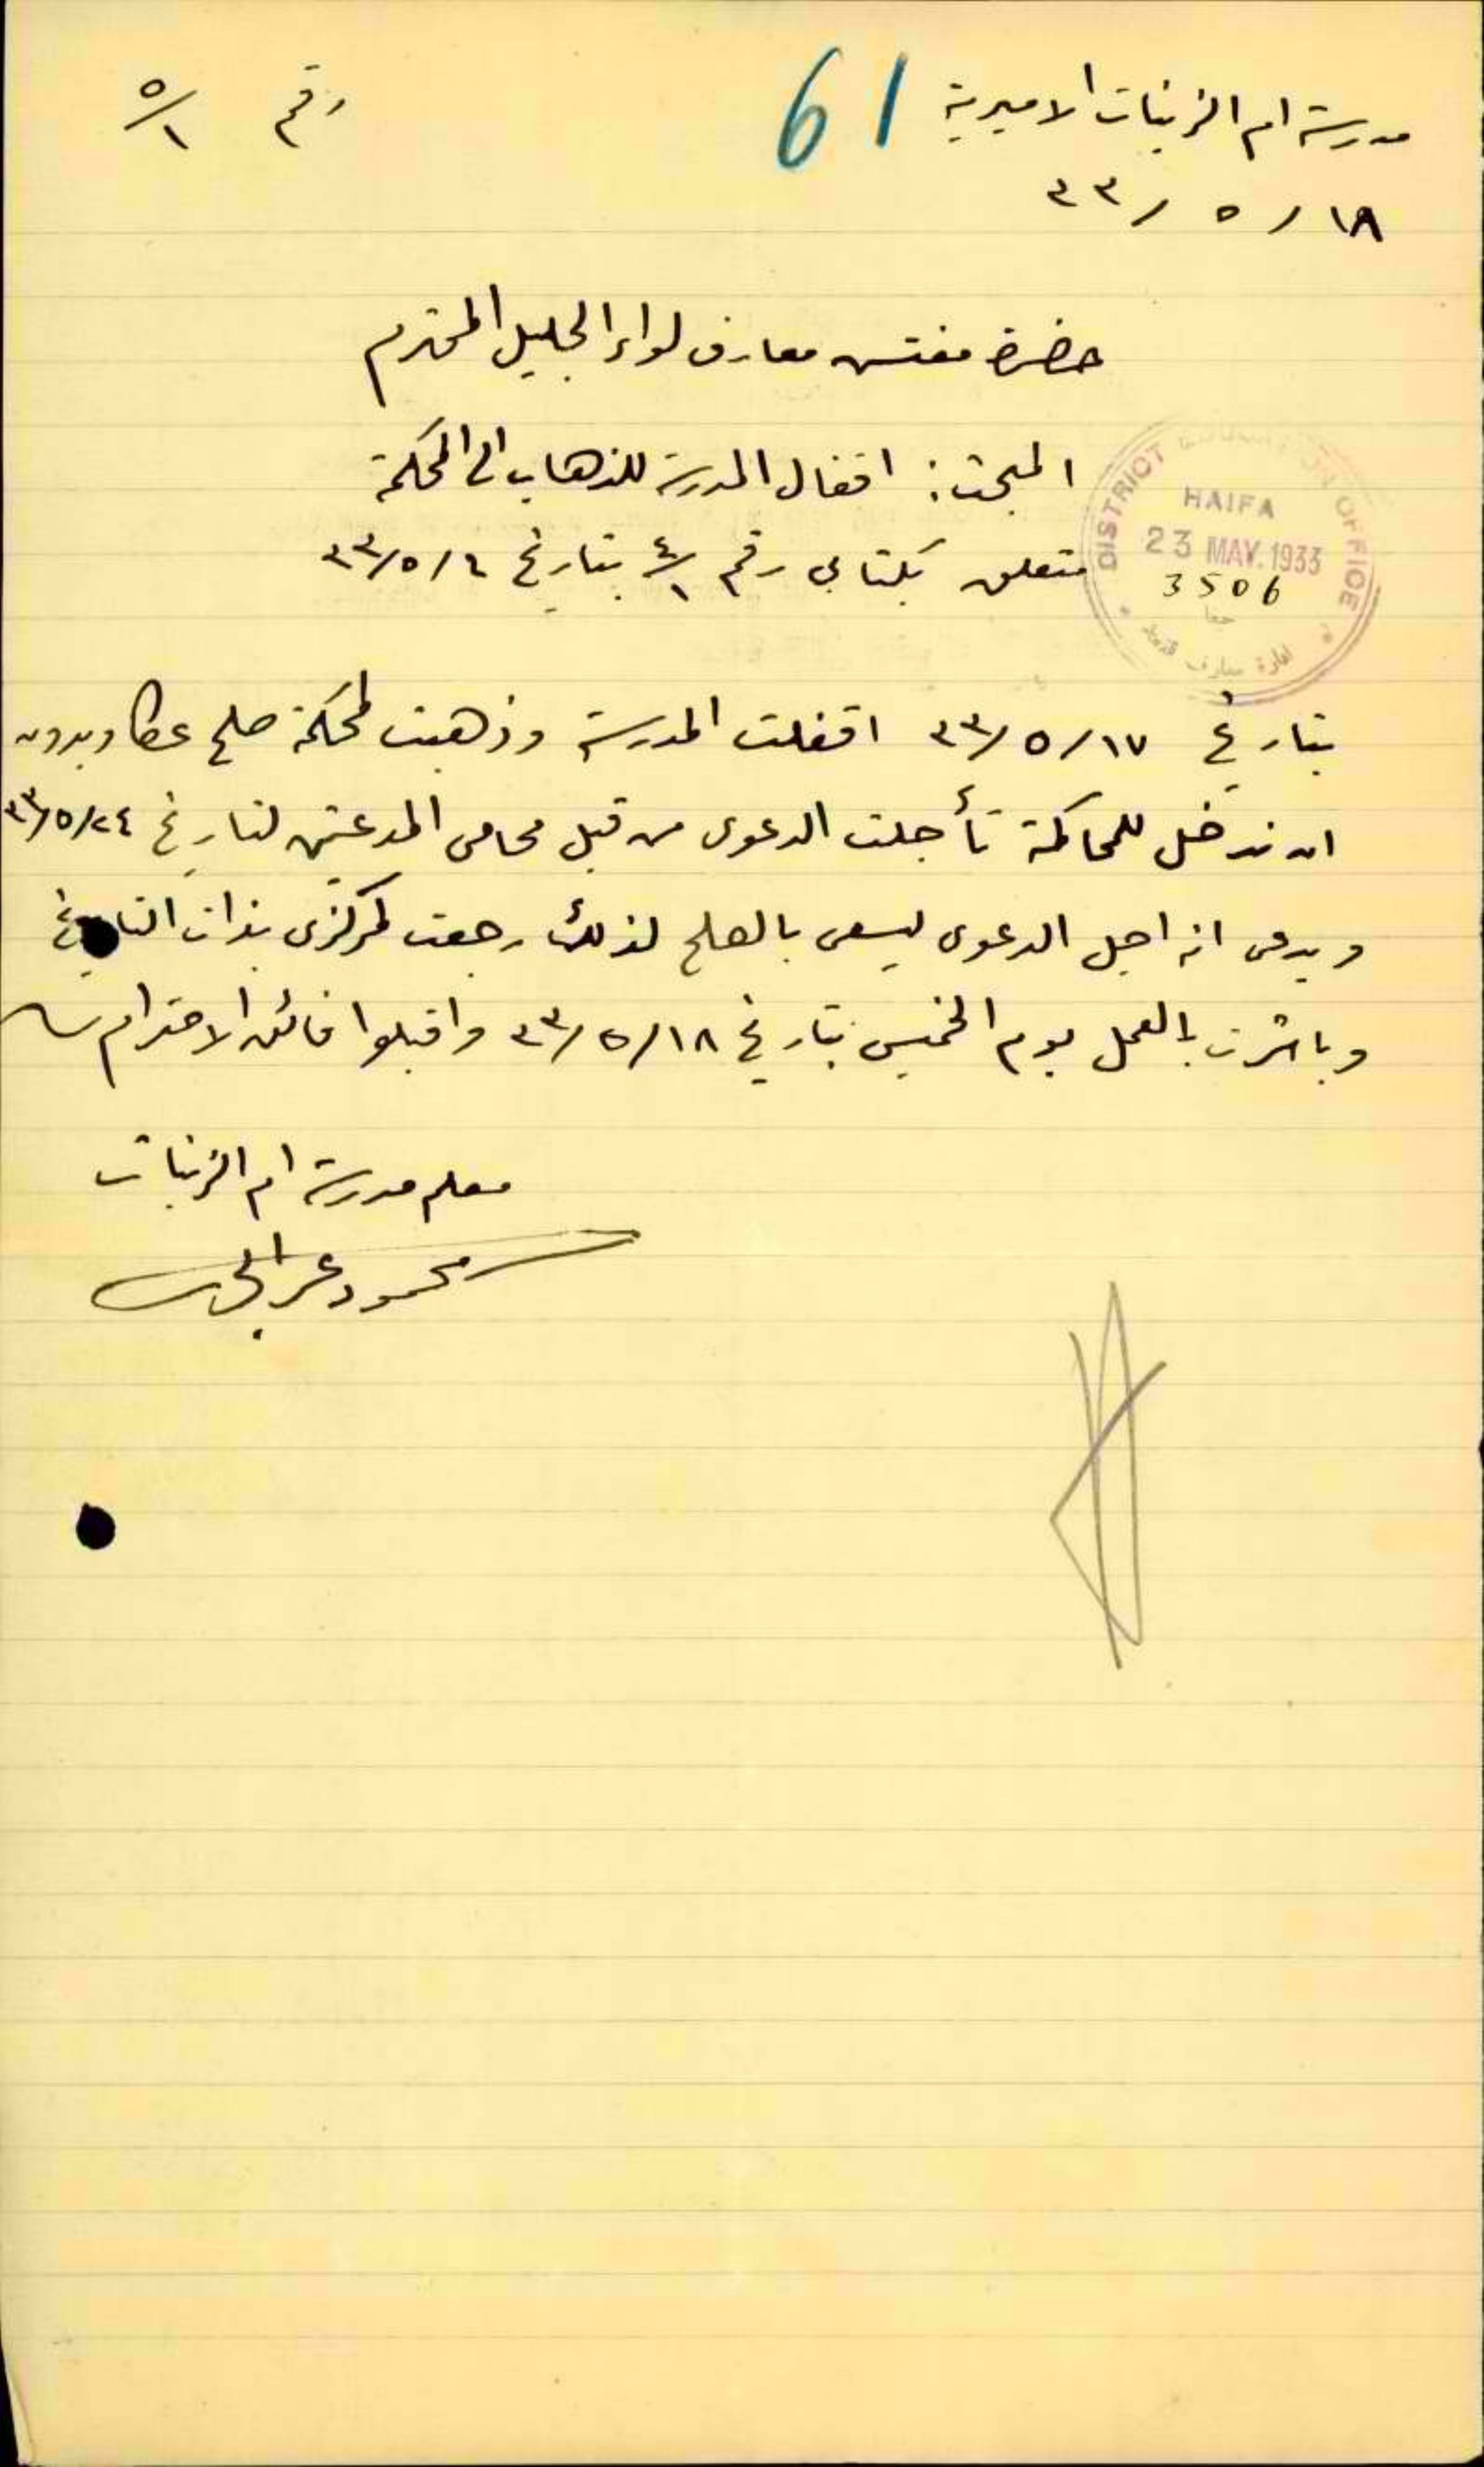 مدرسة ام الزينات الاميرية
61
رقم ٥/١
١٨ / ٥ / ٣٣
حضرة مفتش معارف لواء الجليل المحترم
المبحث: اقفال المدرسة للذهاب الى المحكمة
متعلق بكتابي رقم ٤/١ بتاريخ ٤/٥/٣٣
DISTRICT OFFICE
HAIFA
23 MAY. 1933
3506
بتاريخ ١٧/٥/٣٣ اقفلت المدرسة وذهبت لمحكمة صلح عكا وبدون
ان ندخل للمحاكمة تأجلت الدعوى من قبل محامي المدعين لتاريخ ٢٤/٥/٣٣
ويدعى انه اجل الدعوى ليسعى بالصلح لذلك رجعت لمركزى بذات التاريخ
وباشرت بالعمل يوم الخميس بتاريخ ١٨/٥/٣٣ واقبلوا فائق الاحترام
معلم مدرسة ام الزينات
محمود